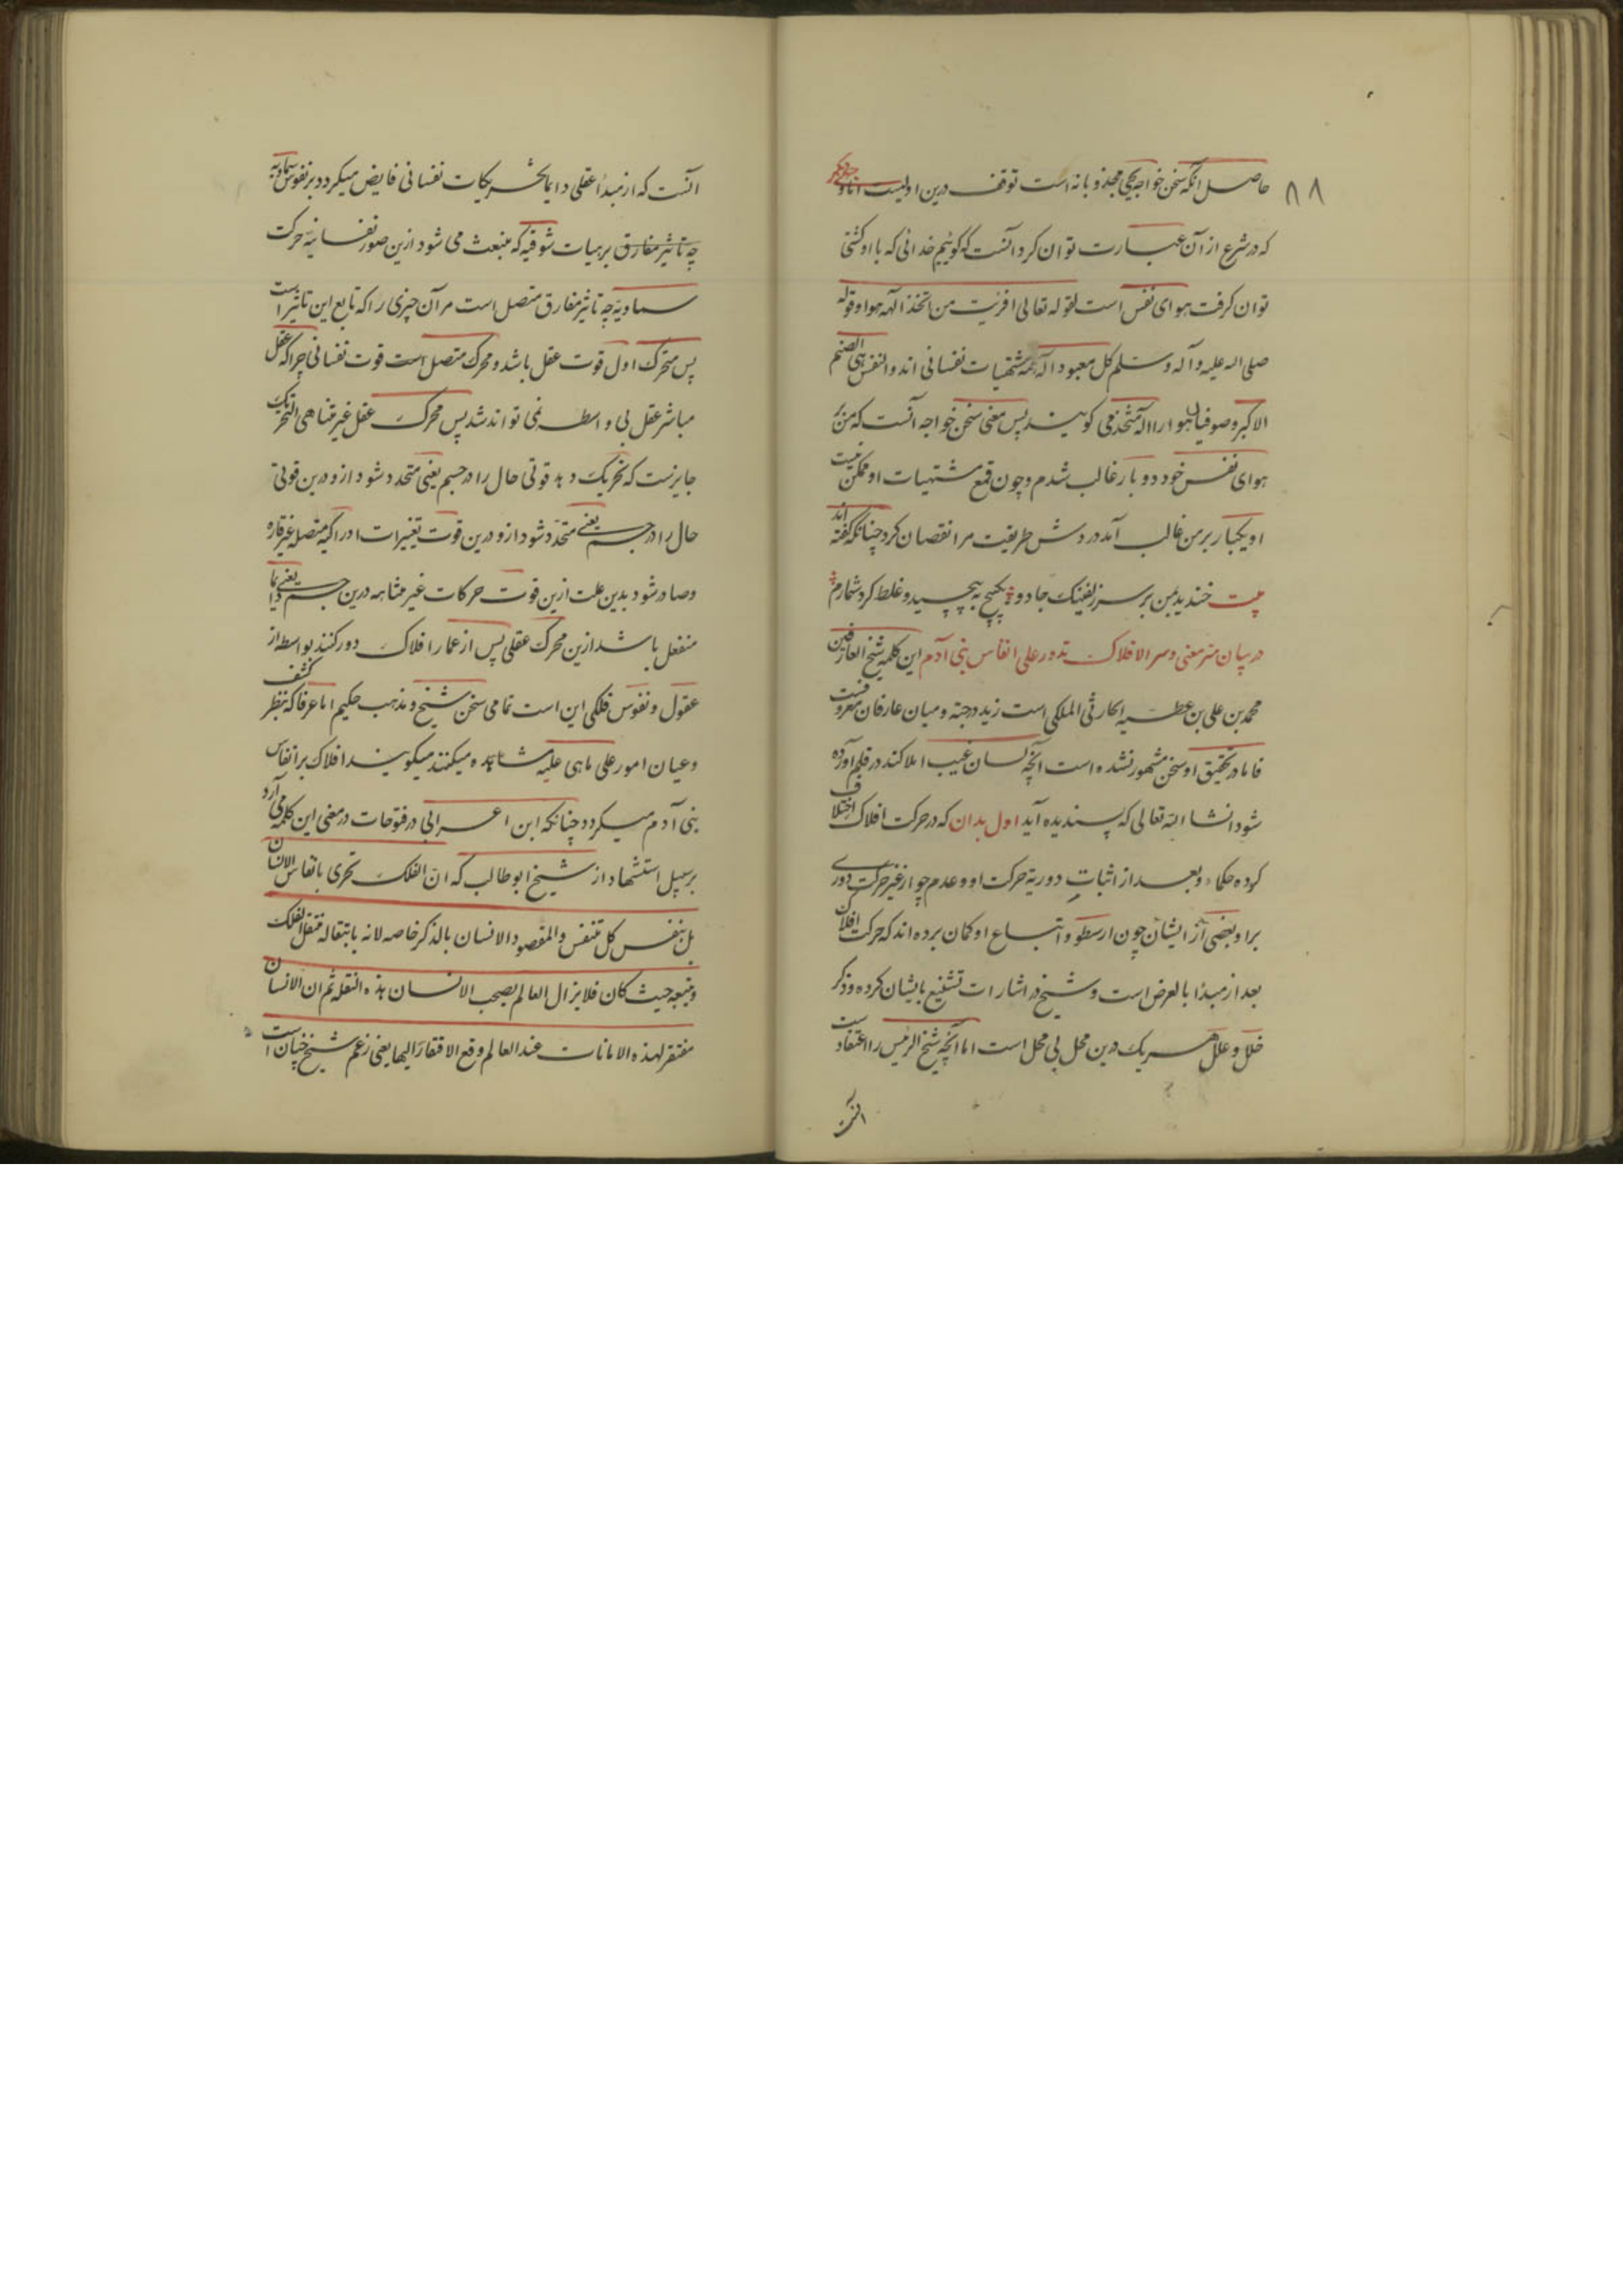 ۸۸
حاصل آنکه سخن خواجه یحیی مجذوبانه است توقف درین اولیست اما
که در شرع از آن عبارت توان کرد آنست که گوئیم خدائی که با او کشتی
توان گرفت هوای نفس است لقوله تعالی افرئیت من اتخذ الهه هواه و قوله
صلی الله علیه و آله و سلم کل معبود اله همه مشتهیات نفسانی اند و النفس هی الصنم
الاکبر و صوفیان هوا را اله متخذ می گویند پس معنی سخن خواجه آنست که من بر
هوای نفس خود دو بار غالب شدم و چون قمع مشتهیات او ممکن نیست
او یکبار بر من غالب آمد در روش طریقت مرا نقصان کرد چنانکه گفته اند
بیت خندید بمن بر سر زلفینک جادو یک پیچ بپیچید و غلط کرد شمارم
در بیان سر معنی و سر الافلاک تدور علی انفاس بنی آدم این کلمه شیخ العارفین
محمد بن علی بن عطیه الحارثی الملکی است زید درجته و میان عارفان معروفست
فاما در تحقیق او سخن مشهور نشده است آنچه لسان غیب املا کند در قلم آورده
شود انشا الله تعالی که پسندیده آید اول بدان که در حرکت افلاک اختلاف
کرده حکماء و بعد از اثبات دوریة حرکت او و عدم جواز غیر حرکت دوری
برا و بعضی از ایشان چون ارسطو و اتباع او گمان برده اند که حرکت افلاک
بعد از مبدأ بالعرض است و شیخ در اشارات تشنیع بایشان کرده و ذکر
خلل و علل هر یک درین محل بی محل است اما آنچه شیخ الرئیس را اعتقاد است
آنست
آنست که از مبدأ عقلی دایما تحریکات نفسانی فایض میگردد بر نفوس سماویه
چه تاثیر مفارق بر هیات شوقیه که منبعث می شود ازین صور نفسانیه حرکت
سماویه چه تاثیر مفارق متصل است مر آن چیزی را که تابع این تاثیر است
پس متحرک اول قوت عقل باشد و محرک متصل است قوت نفسانی چرا که عقل
مباشر عقل بی واسطه نمی تواند شد پس محرک عقل غیر متناهی التحریک
جایزست که تحریک دهد قوتی حال را در جسم یعنی متجدد شود ازو درین قوتی
حال را در جسم یعنی متجدد شود ازو درین قوت تغییرات ادراکیه متصله غیر قاره
و صادر شود بدین علت ازین قوت حرکات غیر متناهیه درین جسم یعنی دایما
منفعل باشد ازین محرک عقلی پس از عما را افلاک دور کنند بواسطه از
عقول و نفوس فلکی این است تمامی سخن شیخ و مذهب حکیم اما عرفا که بنظر کشف
و عیان امور علی ماهی علیه مشاهده میکنند میگویند افلاک بر انفاس
بنی آدم میگردد چنانکه ابن اعرابی در فتوحات در معنی این کلمه می آرد
بر سبیل استشهاد از شیخ ابو طالب که ان الفلک تجری بانفاس الانسان
بل بنفس کل متنفس و المقصود الانسان بالذکر خاصه لانه بانتقاله ینتقل الفلک
و یتبعه حیث کان فلا یزال العالم یصحب الانسان هذه النقله ثم ان الانسان
مفتقر لهذه الامانات عند العالم وقع الافتقار الیها یعنی زعم شیخ چنان است